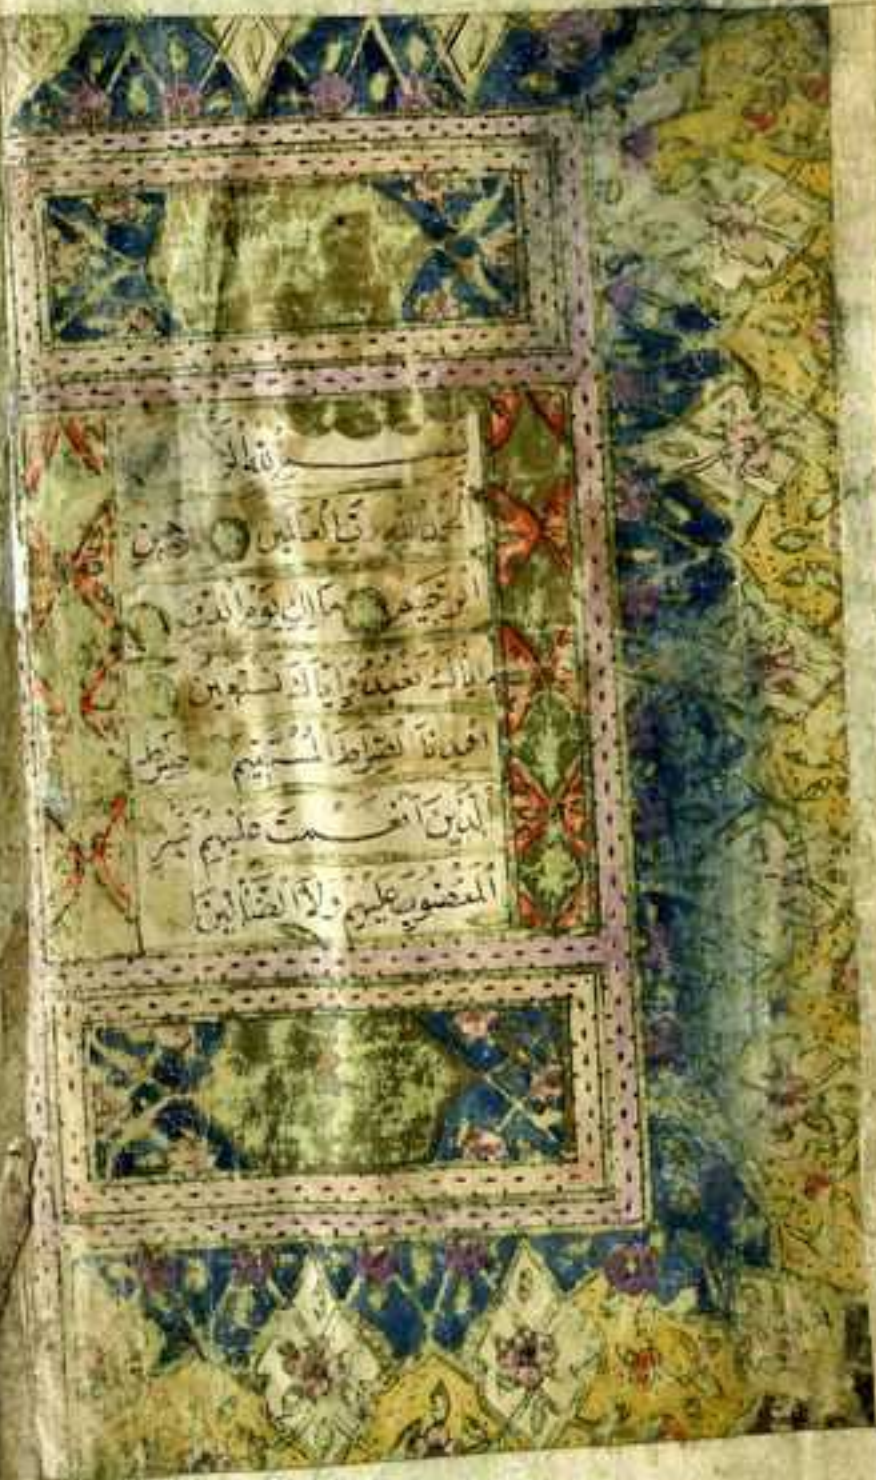 بسم الله ا
الحمد لله رب العالمين
الرحيم مالك يوم الدين
اياك نعبد واياك نستعين
اهدنا الصراط المستقيم صراط
الذين أنعمت عليهم غير
المغضوب عليهم ولا الضالين